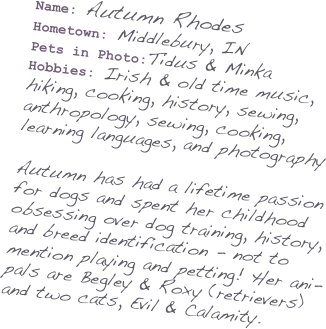 Name: Autumn Rhodes
Hometown: Middlebury, IN
Pets in Photo: Tidus & Minka
Hobbies: Irish & old time music,
hiking, cooking, history, sewing,
anthropology, sewing, cooking,
learning languages, and photography
Autumn has had a lifetime passion
for dogs and spent her childhood
obsessing over dog training, history,
and breed identification - not to
mention playing and petting! Her ani-
pals are Begley & Roxy (retrievers)
and two cats, Evil & Calamity.